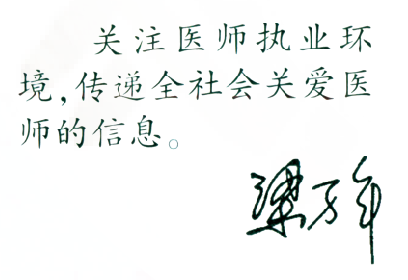 关注医师执业环
境,传递全社会关爱医
师的信息。
梁万年